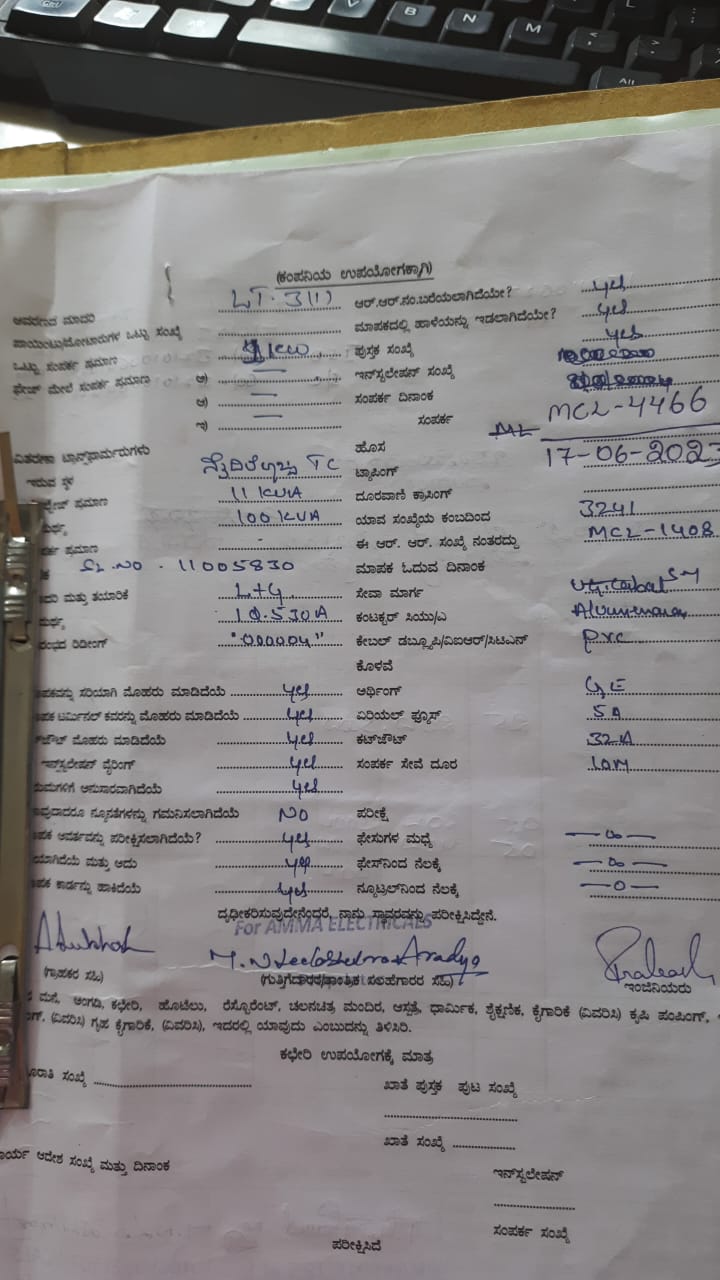 (ಕಂಪನಿಯ ಉಪಯೋಗಕ್ಕಾಗಿ)
ಮಾದರಿ LT-3(1) ಆರ್.ಆರ್.ನಂ.ಬರೆಯಲಾಗಿದೆಯೇ? yes
ಒಟ್ಟು ಸಂಖ್ಯೆ ಮಾಪಕದಲ್ಲಿ ಹಾಳೆಯನ್ನು ಇಡಲಾಗಿದೆಯೇ? yes
ಒಟ್ಟು ಸಂಪರ್ಕ ಪ್ರಮಾಣ KW ಪುಸ್ತಕ ಸಂಖ್ಯೆ yes
ಫೇಜ್ ಮೇಲೆ ಸಂಪರ್ಕ ಪ್ರಮಾಣ ಅ) — ಇನ್‌ಸ್ಟಲೇಷನ್ ಸಂಖ್ಯೆ
ಆ) — ಸಂಪರ್ಕ ದಿನಾಂಕ
ಇ) — ಸಂಪರ್ಕ MCL-4466
ವಿತರಣಾ ಟ್ರಾನ್ಸ್‌ಫಾರ್ಮರುಗಳು ಹೊಸ 17-06-2023
ಇರುವ ಸ್ಥಳ TC ಟ್ಯಾಪಿಂಗ್
ಪ್ರಮಾಣ 11 KVA ದೂರವಾಣಿ ಕ್ರಾಸಿಂಗ್
100 KVA ಯಾವ ಸಂಖ್ಯೆಯ ಕಂಬದಿಂದ 3241
ಪ್ರಮಾಣ - ಈ ಆರ್. ಆರ್. ಸಂಖ್ಯೆ ನಂತರದ್ದು MCL-1408
SL.NO. 11005830 ಮಾಪಕ ಓದುವ ದಿನಾಂಕ
ಮತ್ತು ತಯಾರಿಕೆ L+G ಸೇವಾ ಮಾರ್ಗ
10.530A ಕಂಟಕ್ಟರ್ ಸಿಯು/ಎ
ರೀಡಿಂಗ್ "000004" ಕೇಬಲ್ ಡಬ್ಲ್ಯೂಪಿ/ವಿಐಆರ್/ಸಿಟಿಎನ್ PVC
ಕೊಳವೆ
ಸರಿಯಾಗಿ ಮೊಹರು ಮಾಡಿದೆಯೆ yes ಅರ್ಥಿಂಗ್ GE
ಟರ್ಮಿನಲ್ ಕವರನ್ನು ಮೊಹರು ಮಾಡಿದೆಯೆ yes ಏರಿಯಲ್ ಫ್ಯೂಸ್ 5A
ಮೊಹರು ಮಾಡಿದೆಯೆ yes ಕಟ್‌ಔಟ್ 32A
ಇನ್‌ಸ್ಟಲೇಷನ್ ವೈರಿಂಗ್ yes ಸಂಪರ್ಕ ಸೇವೆ ದೂರ 10M
ಅನುಸಾರವಾಗಿದೆಯೆ yes
ನ್ಯೂನತೆಗಳನ್ನು ಗಮನಿಸಲಾಗಿದೆಯೆ NO ಪರೀಕ್ಷೆ
ಪರೀಕ್ಷಿಸಲಾಗಿದೆಯೆ? yes ಫೇಸುಗಳ ಮಧ್ಯೆ —∞—
ಮತ್ತು ಅದು yes ಫೇಸ್‌ನಿಂದ ನೆಲಕ್ಕೆ —∞—
ಕಾರ್ಡನ್ನು ಹಾಕಿದೆಯೆ yes ನ್ಯೂಟ್ರಲ್‌ನಿಂದ ನೆಲಕ್ಕೆ —0—
ದೃಢೀಕರಿಸುವುದೇನೆಂದರೆ, ನಾನು ಸ್ಥಾವರವನ್ನು ಪರೀಕ್ಷಿಸಿದ್ದೇನೆ.
For AMMA ELECTRICALS
(ಗ್ರಾಹಕರ ಸಹಿ) (ಗುತ್ತಿಗೆದಾರರ/ತಾಂತ್ರಿಕ ಸಲಹೆಗಾರರ ಸಹಿ) ಇಂಜಿನಿಯರು
ಮನೆ, ಅಂಗಡಿ, ಕಛೇರಿ, ಹೊಟೆಲು, ರೆಸ್ಟೊರೆಂಟ್, ಚಲನಚಿತ್ರ ಮಂದಿರ, ಆಸ್ಪತ್ರೆ, ಧಾರ್ಮಿಕ, ಶೈಕ್ಷಣಿಕ, ಕೈಗಾರಿಕೆ (ವಿವರಿಸಿ) ಕೃಷಿ ಪಂಪಿಂಗ್,
(ವಿವರಿಸಿ) ಗೃಹ ಕೈಗಾರಿಕೆ, (ವಿವರಿಸಿ), ಇದರಲ್ಲಿ ಯಾವುದು ಎಂಬುದನ್ನು ತಿಳಿಸಿರಿ.
ಕಛೇರಿ ಉಪಯೋಗಕ್ಕೆ ಮಾತ್ರ
ಸಂಖ್ಯೆ ಖಾತೆ ಪುಸ್ತಕ ಪುಟ ಸಂಖ್ಯೆ
ಖಾತೆ ಸಂಖ್ಯೆ
ಆದೇಶ ಸಂಖ್ಯೆ ಮತ್ತು ದಿನಾಂಕ ಇನ್‌ಸ್ಟಲೇಷನ್
ಸಂಪರ್ಕ ಸಂಖ್ಯೆ
ಪರೀಕ್ಷಿಸಿದೆ